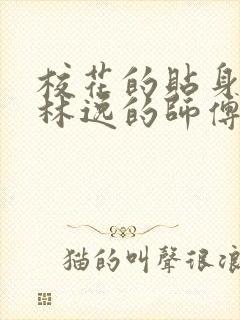 校花的貼身
林逸的師傅
猫的叫聲很浪